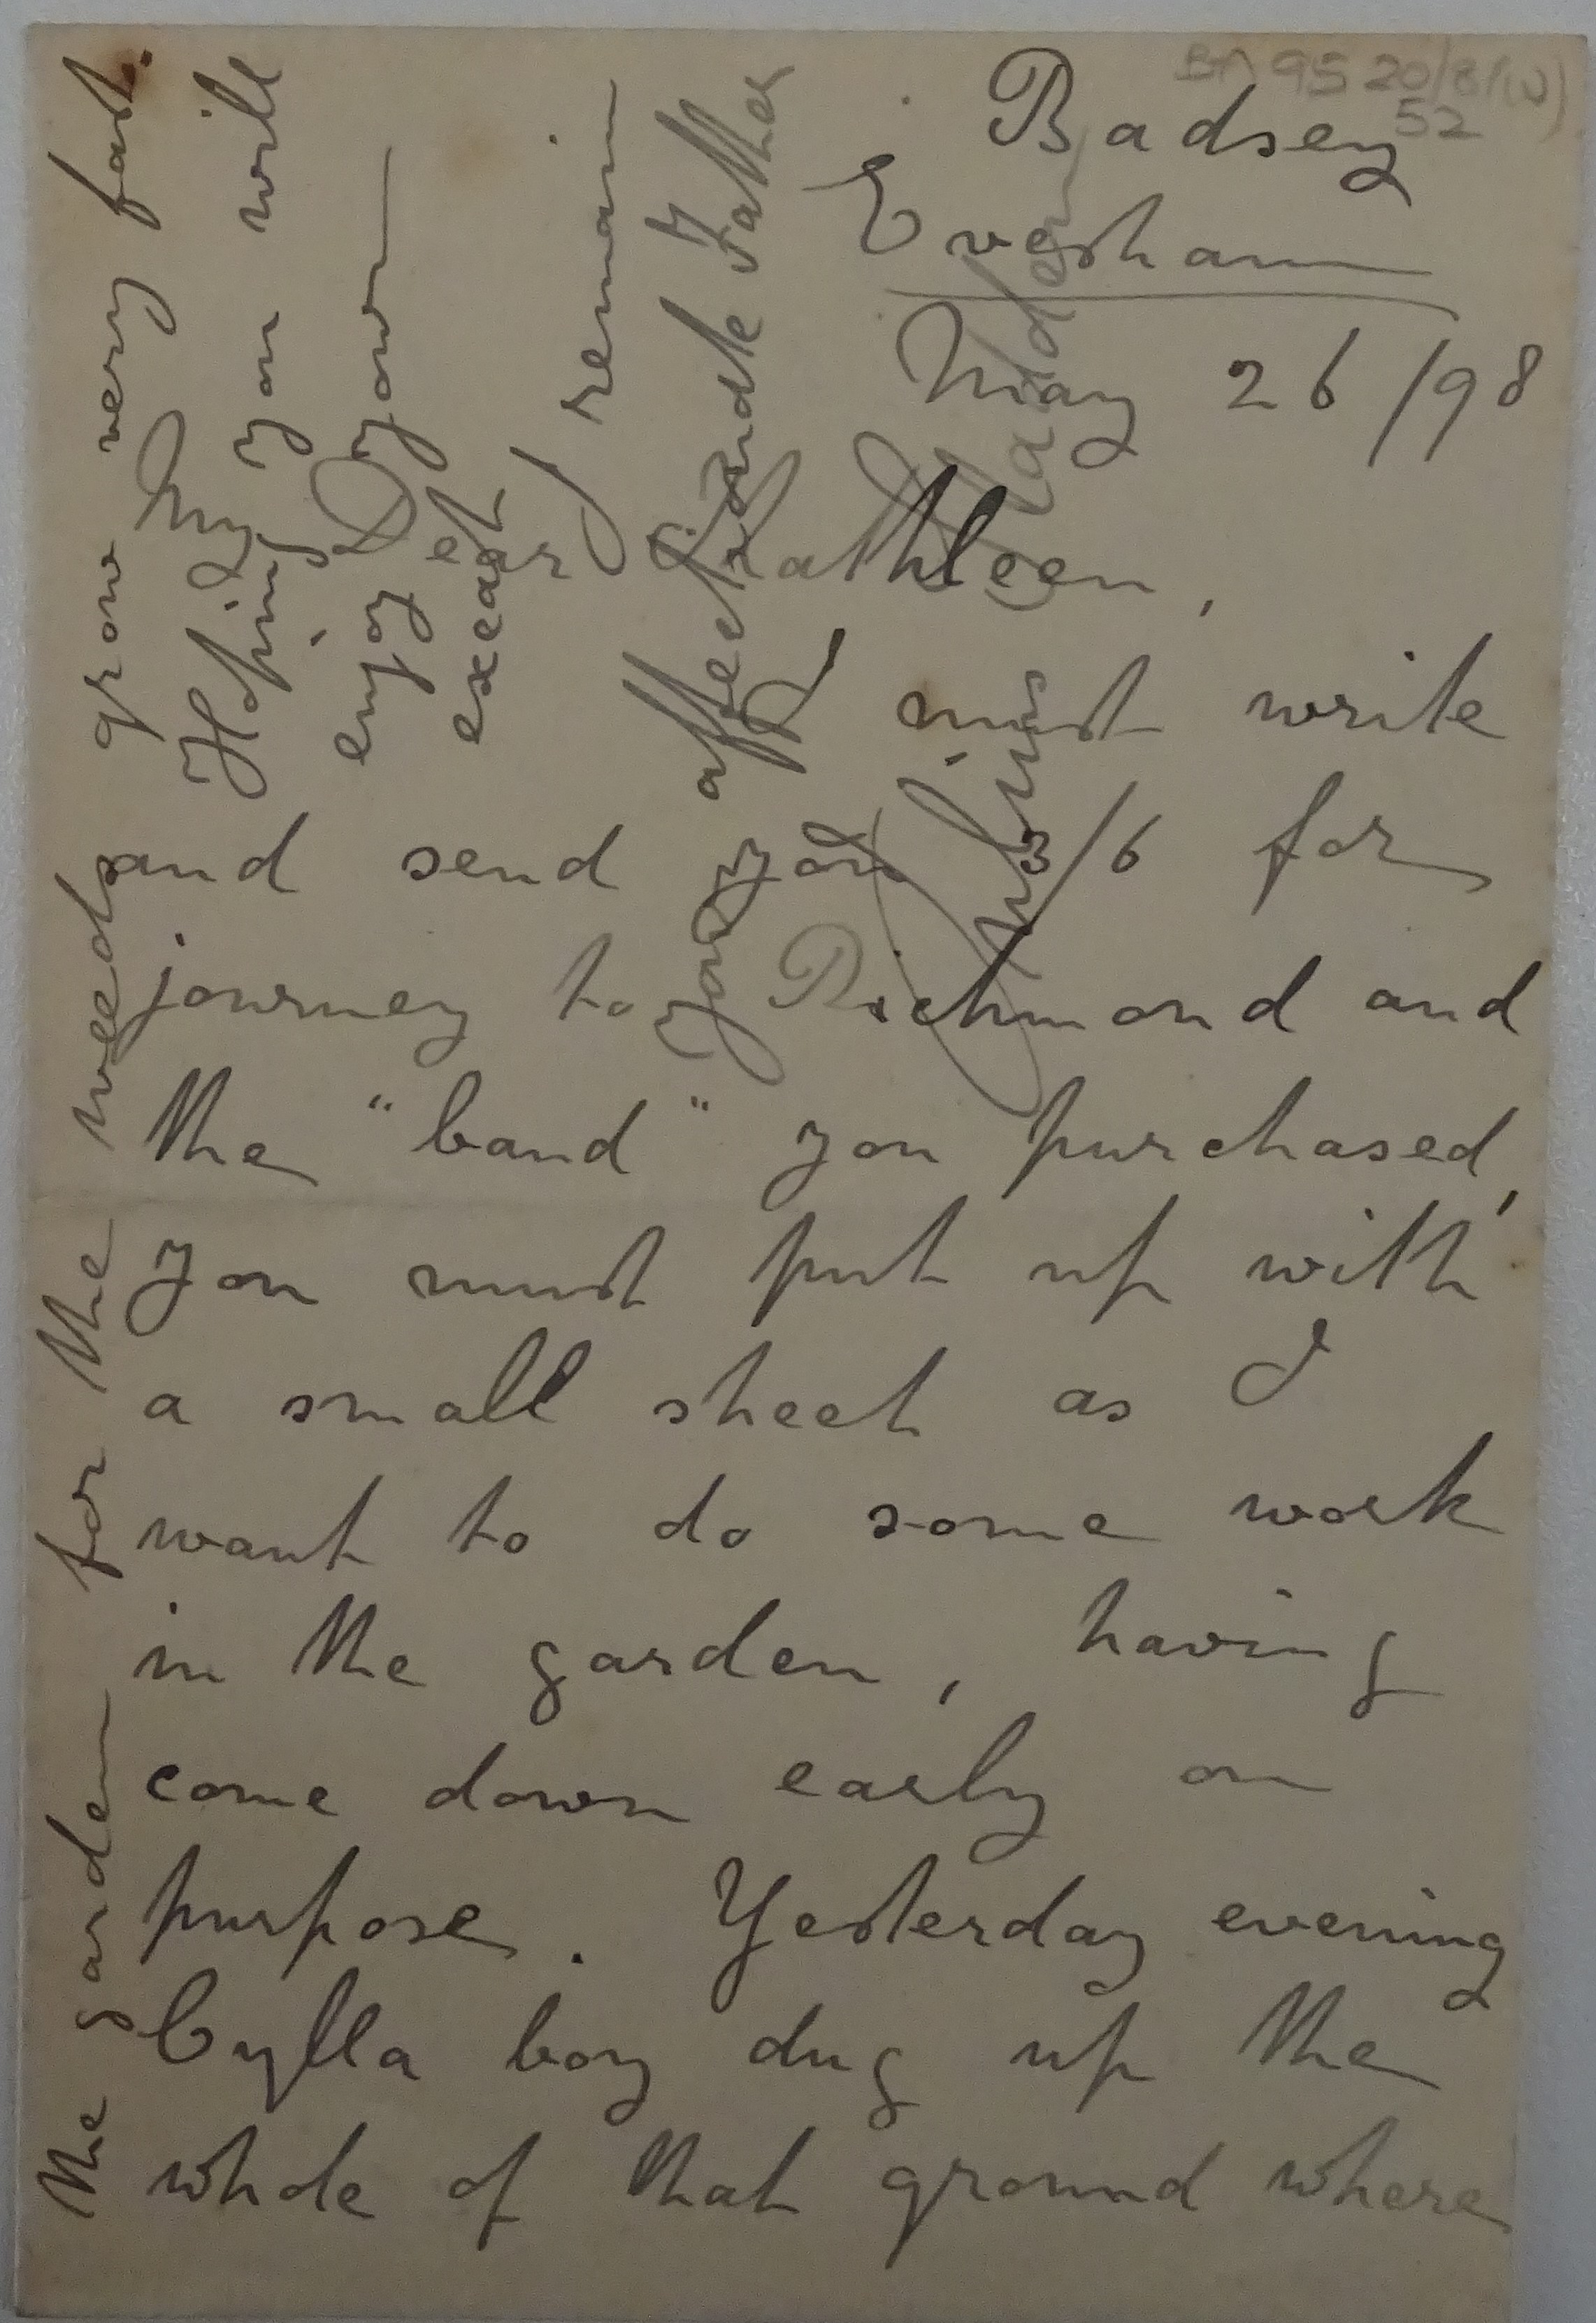 BA 9520/8/(v)
52
Badsey
Evesham
May 26/98
My Dear Kathleen,
I must write
and send you 3/6 for
journey to Richmond and
the "band" you purchased,
you must put up with
a small sheet as I
want to do some work
in the garden, having
come down early on
purpose. Yesterday evening
Cylla boy dug up the
whole of that ground where
the garden for the weeds grow very fast.
Hoping you will
enjoy your
exeat
I remain
your affectionate Father
Julius Sladden